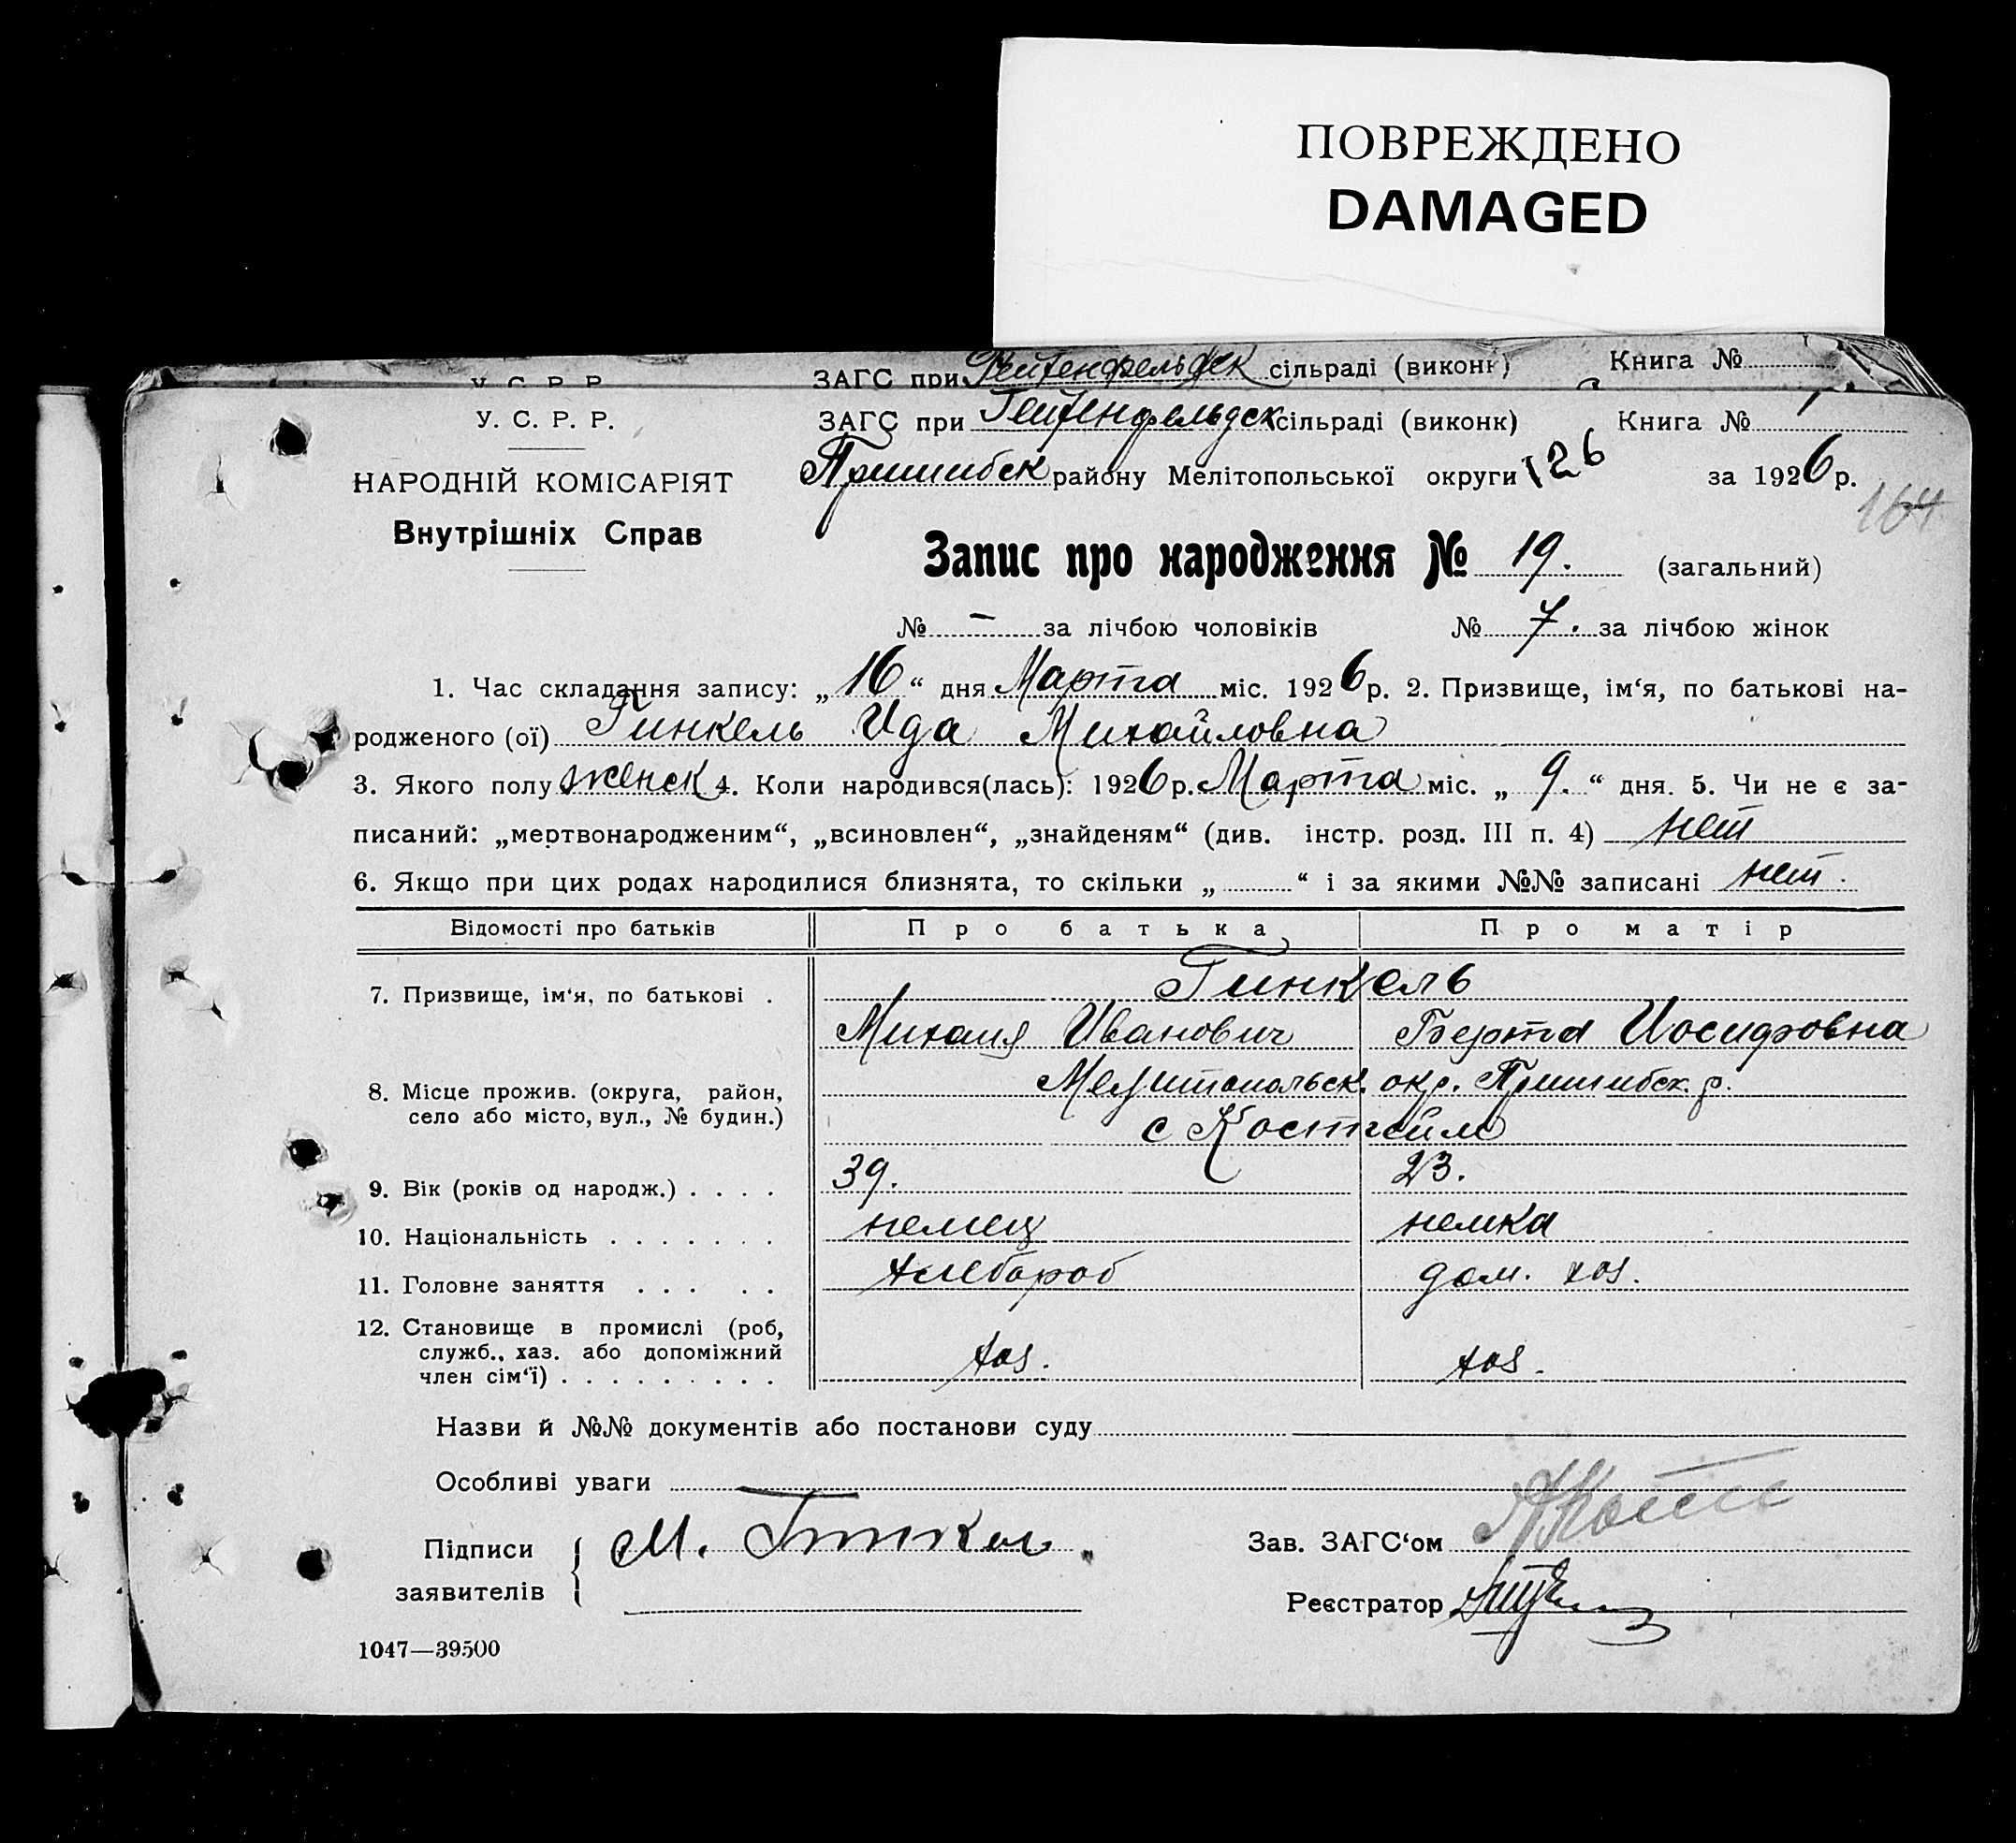 ПОВРЕЖДЕНО
DAMAGED
У. С. Р. Р. ЗАГС при сільраді (виконк) Книга №
У. С. Р. Р. ЗАГС при Гейденфельдск сільраді (виконк) Книга № 1
НАРОДНІЙ КОМІСАРІЯТ Пришибск району Мелітопольської округи 126 за 1926 р.
164
Внутрішніх Справ
Запис про народження № 19. (загальний)
№ – за лічбою чоловіків № 7. за лічбою жінок
1. Час складання запису: „16“ дня Марта міс. 1926 р. 2. Призвище, ім‘я, по батькові на-
родженого (ої) Гинкель Ида Михайловна
3. Якого полу женск 4. Коли народився(лась): 1926 р. Марта міс. „9.“ дня. 5. Чи не є за-
писаний: „мертвонародженим“, „всиновлен“, „знайденям“ (див. інстр. розд. III п. 4) нет
6. Якщо при цих родах народилися близнята, то скільки „.........“ і за якими №№ записані нет.
Відомості про батьків Про батька Про матір
7. Призвище, ім‘я, по батькові . Гинкель
Михаил Иванович Берта Иосифовна
8. Місце прожив. (округа, район, Мелитопольск. окр. Пришибск. р.
село або місто, вул., № будин.) с Костгейм
9. Вік (років од народж.) . . . . 39. 23.
10. Національність . . . . . . . немец немка
11. Головне заняття . . . . . хлебороб дом. хоз.
12. Становище в промислі (роб,
служб., хаз. або допоміжний хоз. хоз.
член сім‘ї) . . . . . . . . .
Назви й №№ документів або постанови суду
Особливі уваги
Підписи М. Гинкель Зав. ЗАГС‘ом
заявителів Реєстратор
1047—39500